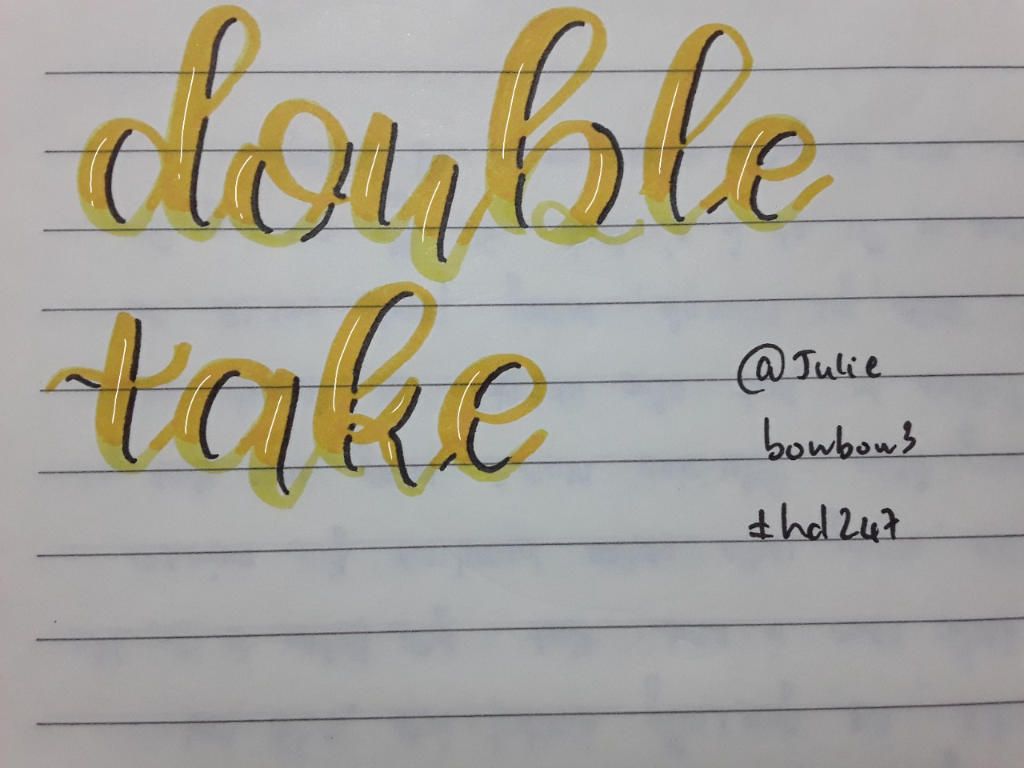 double
take
@Julie
bowbow3
#hd247